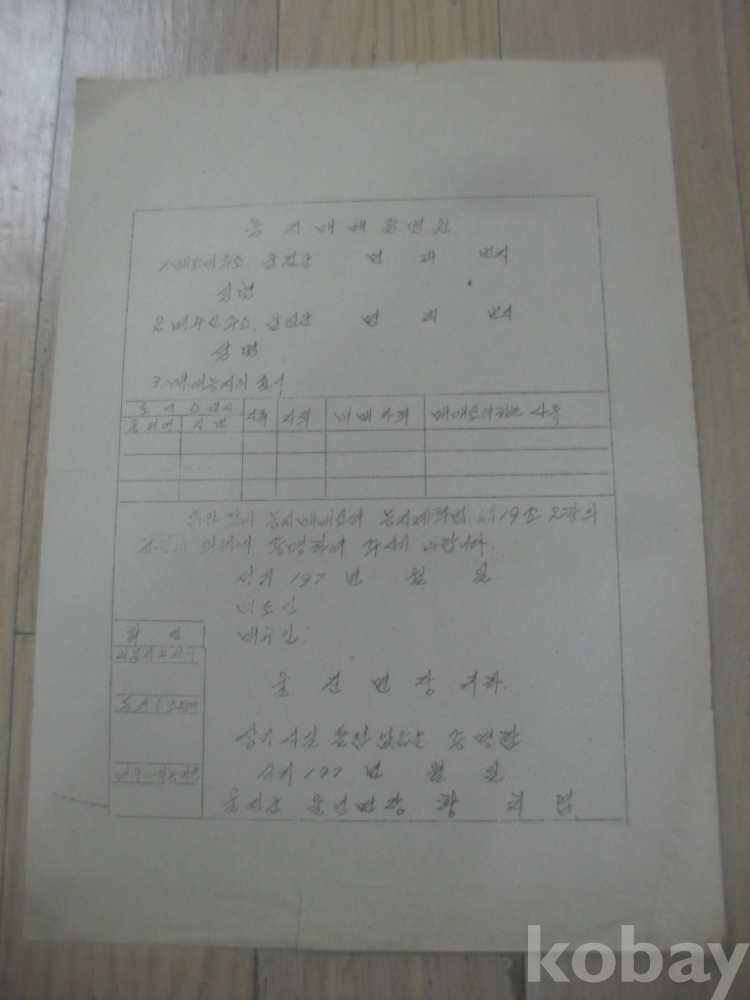 농지매매증명원
1. 매도인주소. 울진군 면 리 번지
성명
2. 매수인주소. 울진군 면 리 번지
성명
3. 매매농지의 표시
토지소재지 지목 지적 매매가격 매매코저하는 사유
동리명 지번
위와 같이 농지매매코저 농지개혁법 제19조 2항의
규정에 의하여 증명하여 주시기 바랍니다.
서기 197 년 월 일
매도인
확인 매수인.
울진면장 귀하.
상기 사실 틀림없음을 증명함
서기 197 년 월 일
울진군 울진면장 황
kobay